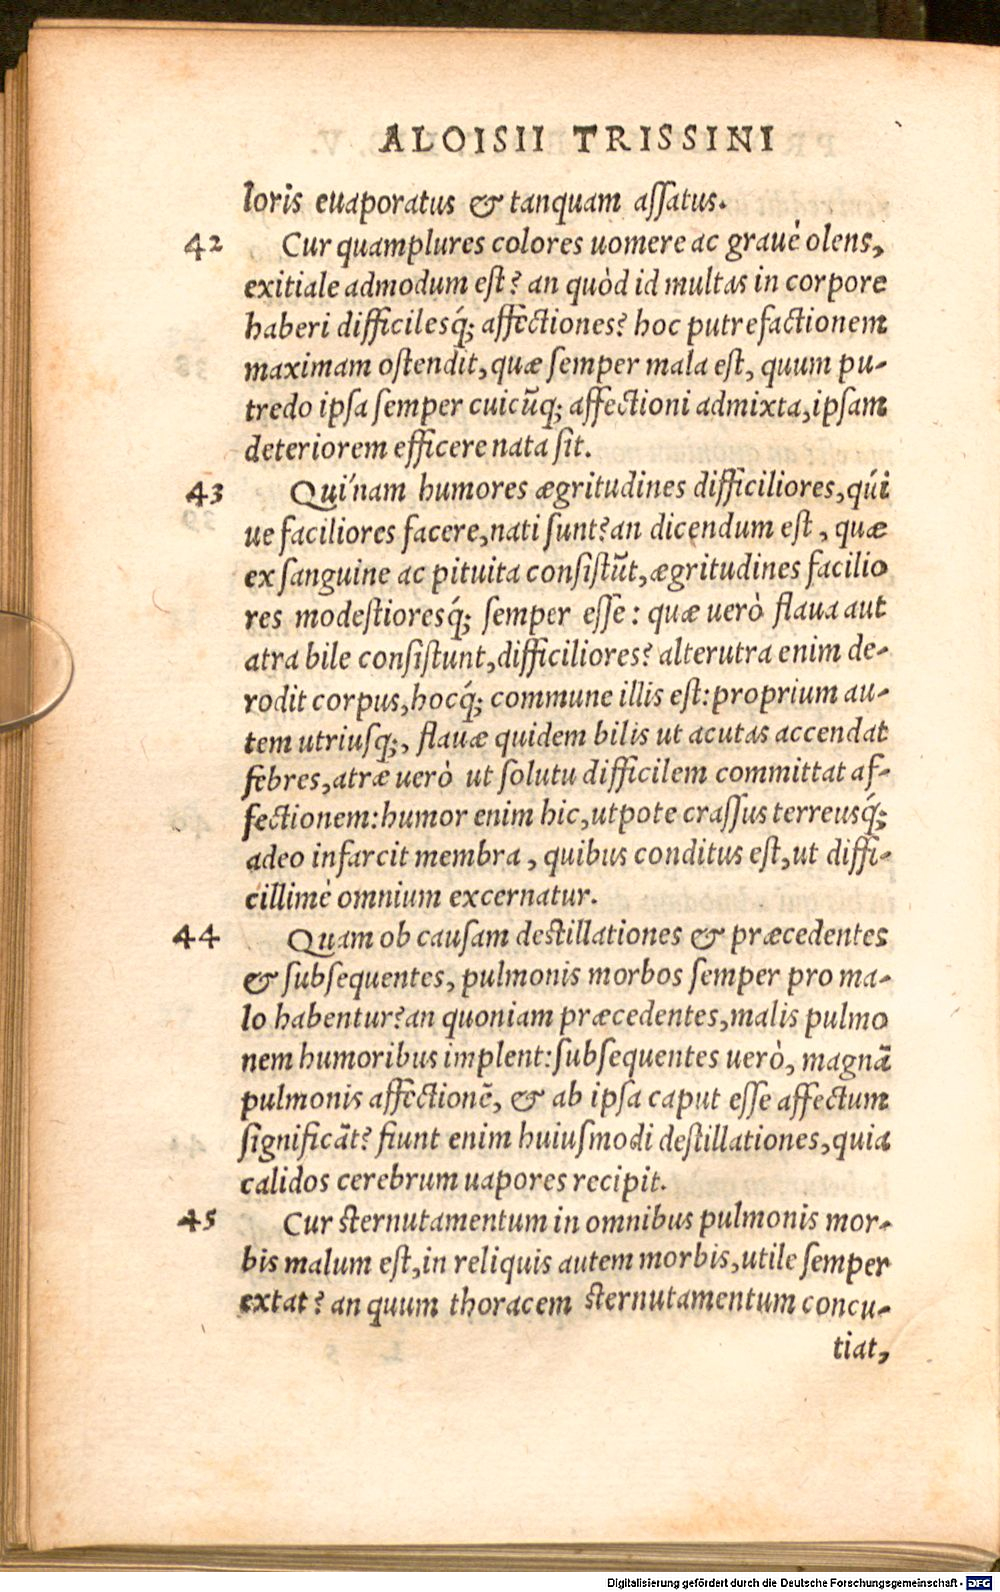 ALOISII TRISSINI
loris euaporatus & tanquam assatus.
42 Cur quamplures colores uomere ac grauè olens,
exitiale admodum est? an quòd id multas in corpore
haberi difficilesq́; affectiones? hoc putrefactionem
maximam ostendit, quæ semper mala est, quum pu-
tredo ipsa semper cuicũq; affectioni admixta, ipsam
deteriorem efficere nata sit.
43 Quínam humores ægritudines difficiliores, qúi
ue faciliores facere, nati sunt? an dicendum est, quæ
ex sanguine ac pituita consistũt, ægritudines facilio
res modestioresq́; semper esse: quæ uerò flaua aut
atra bile consistunt, difficiliores? alterutra enim de-
rodit corpus, hocq́; commune illis est: proprium au-
tem utriusq;, flauæ quidem bilis ut acutas accendat
febres, atræ uerò ut solutu difficilem committat af-
fectionem: humor enim hic, utpote crassus terreusq́;
adeo infarcit membra, quibus conditus est, ut diffi-
cillimè omnium excernatur.
44 Quam ob causam destillationes & præcedentes
& subsequentes, pulmonis morbos semper pro ma-
lo habentur? an quoniam præcedentes, malis pulmo
nem humoribus implent: subsequentes uerò, magnã
pulmonis affectionẽ, & ab ipsa caput esse affectum
significãt? fiunt enim huiusmodi destillationes, quia
calidos cerebrum uapores recipit.
45 Cur sternutamentum in omnibus pulmonis mor-
bis malum est, in reliquis autem morbis, utile semper
extat? an quum thoracem sternutamentum concu-
tiat,
Digitalisierung gefördert durch die Deutsche Forschungsgemeinschaft - DFG